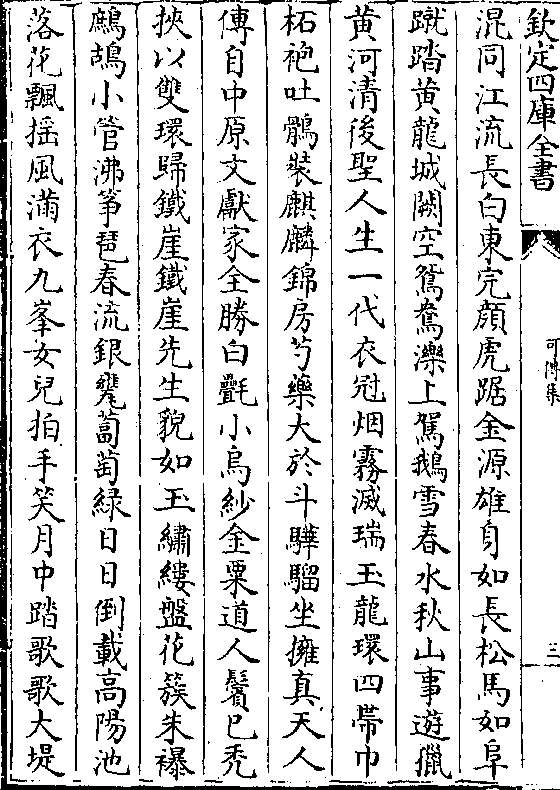 欽定四庫全書
可傳集
三
混同江流長白東完顔虎踞金源雄身如長松馬如阜
蹴踏黄龍城闕空鴛鴦濼上駕鵝雪春水秋山事遊獵
黄河清後聖人生一代衣冠烟霧滅瑞玉龍環四帶巾
柘袍吐鶻裝麒麟錦房芍藥大於斗驊騮坐擁真天人
傳自中原文獻家全勝白㲲小烏紗金粟道人鬢已秃
挾以雙環歸鐵崖鐵崖先生貌如玉繡縷盤花簇朱襮
鷓鴣小管沸筝琶春流銀甕蔔萄緑日日倒載高陽池
落花飄揺風滿衣九峯女兒拍手笑月中踏歌歌大堤